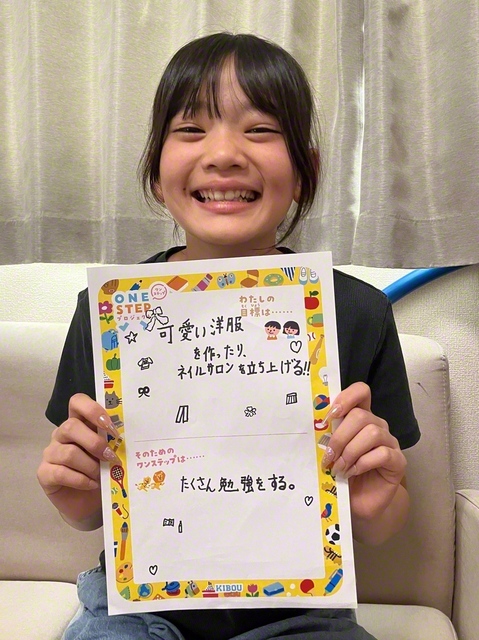 ONE
STEP
ワンステップ
プロジェクト
わたしの
目標は……
可愛い洋服
を作ったり、
ネイルサロンを立ち上げる!!
そのための
ワンステップは……
たくさん勉強をする。
KIBOU